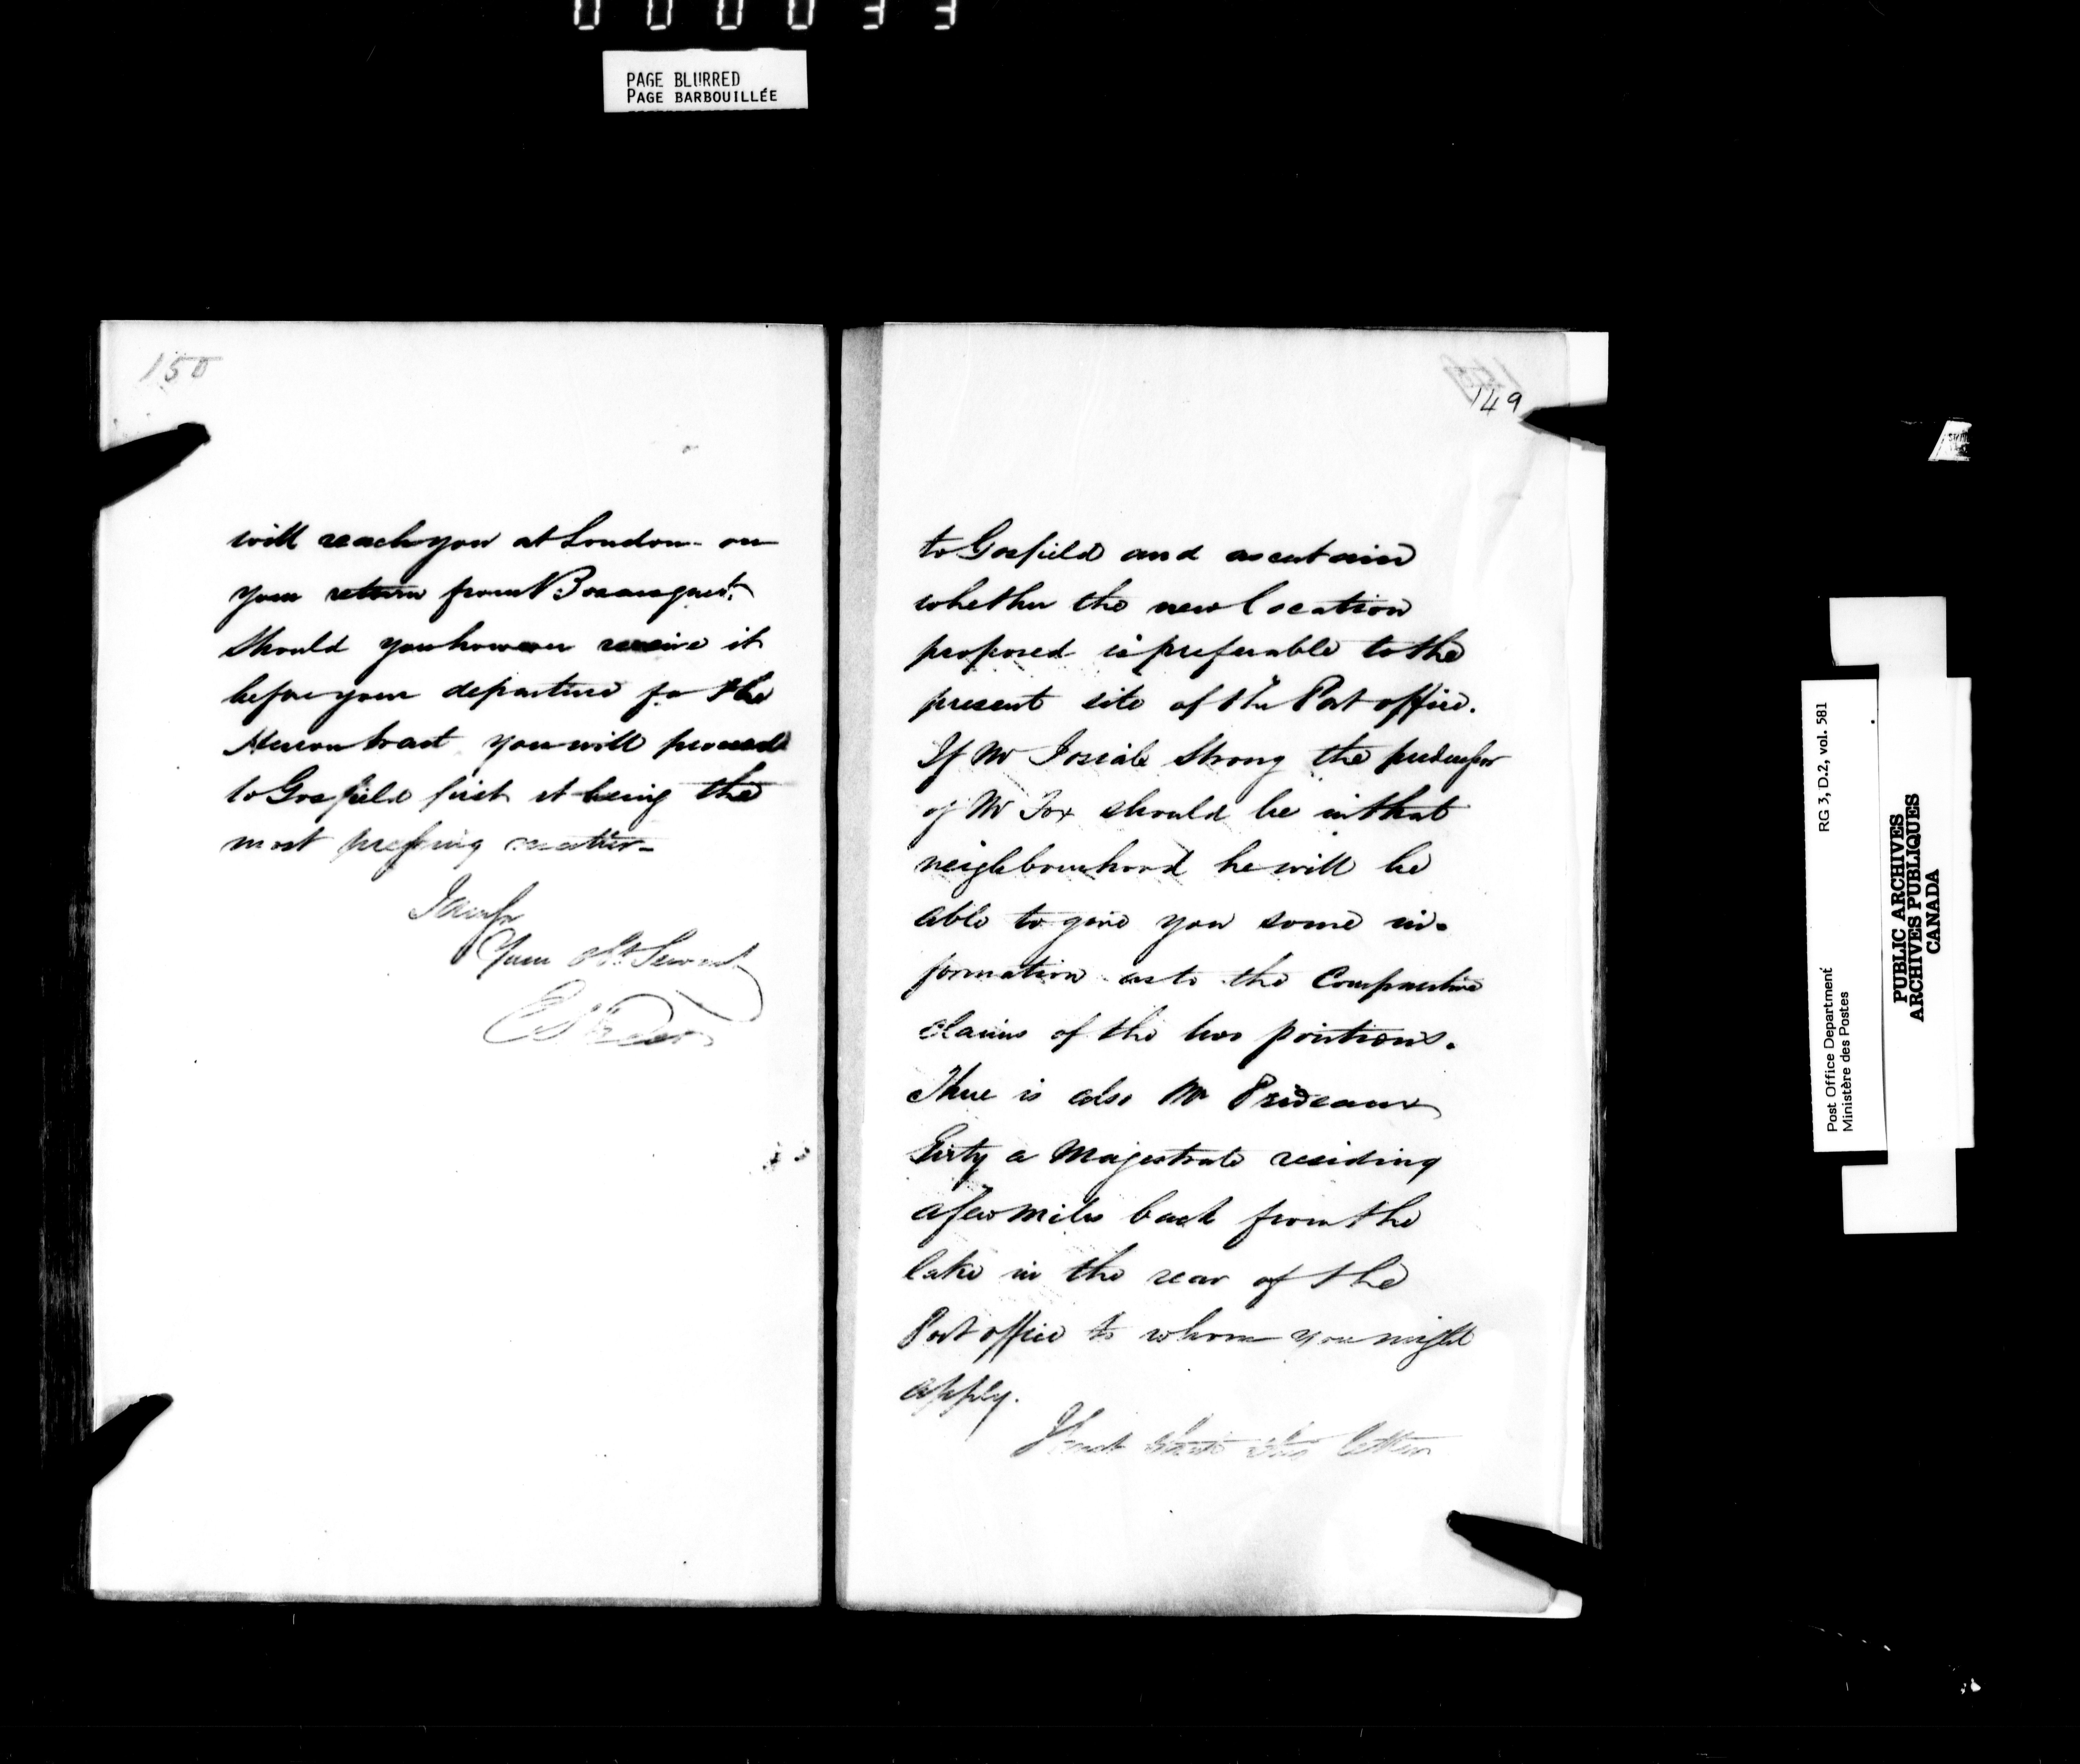 000033
PAGE BLURRED
PAGE BARBOUILLÉE
150
will reach you at London on
your return from Bosanquet.
Should you however receive it
before your departure for the
Huron tract you will proceed
to Gosfield first it being the
most pressing matter -
I am Sir
Your Obt Servant
149
to Gosfield and ascertain
whether the new location
proposed is preferable to the
present site of the Post office.
If Mr Josiah Strong the predecessor
of Mr Fox should be in that
neighbourhood he will be
able to give you some in-
formation as to the Comparative
claims of the two positions.
There is also Mr Prideaux
Girty a Magistrate residing
a few miles back from the
lake in the rear of the
Post office to whom you might
apply.
I trust that this letter
RG 3, D.2, vol. 581
Post Office Department
Ministère des Postes
PUBLIC ARCHIVES
ARCHIVES PUBLIQUES
CANADA